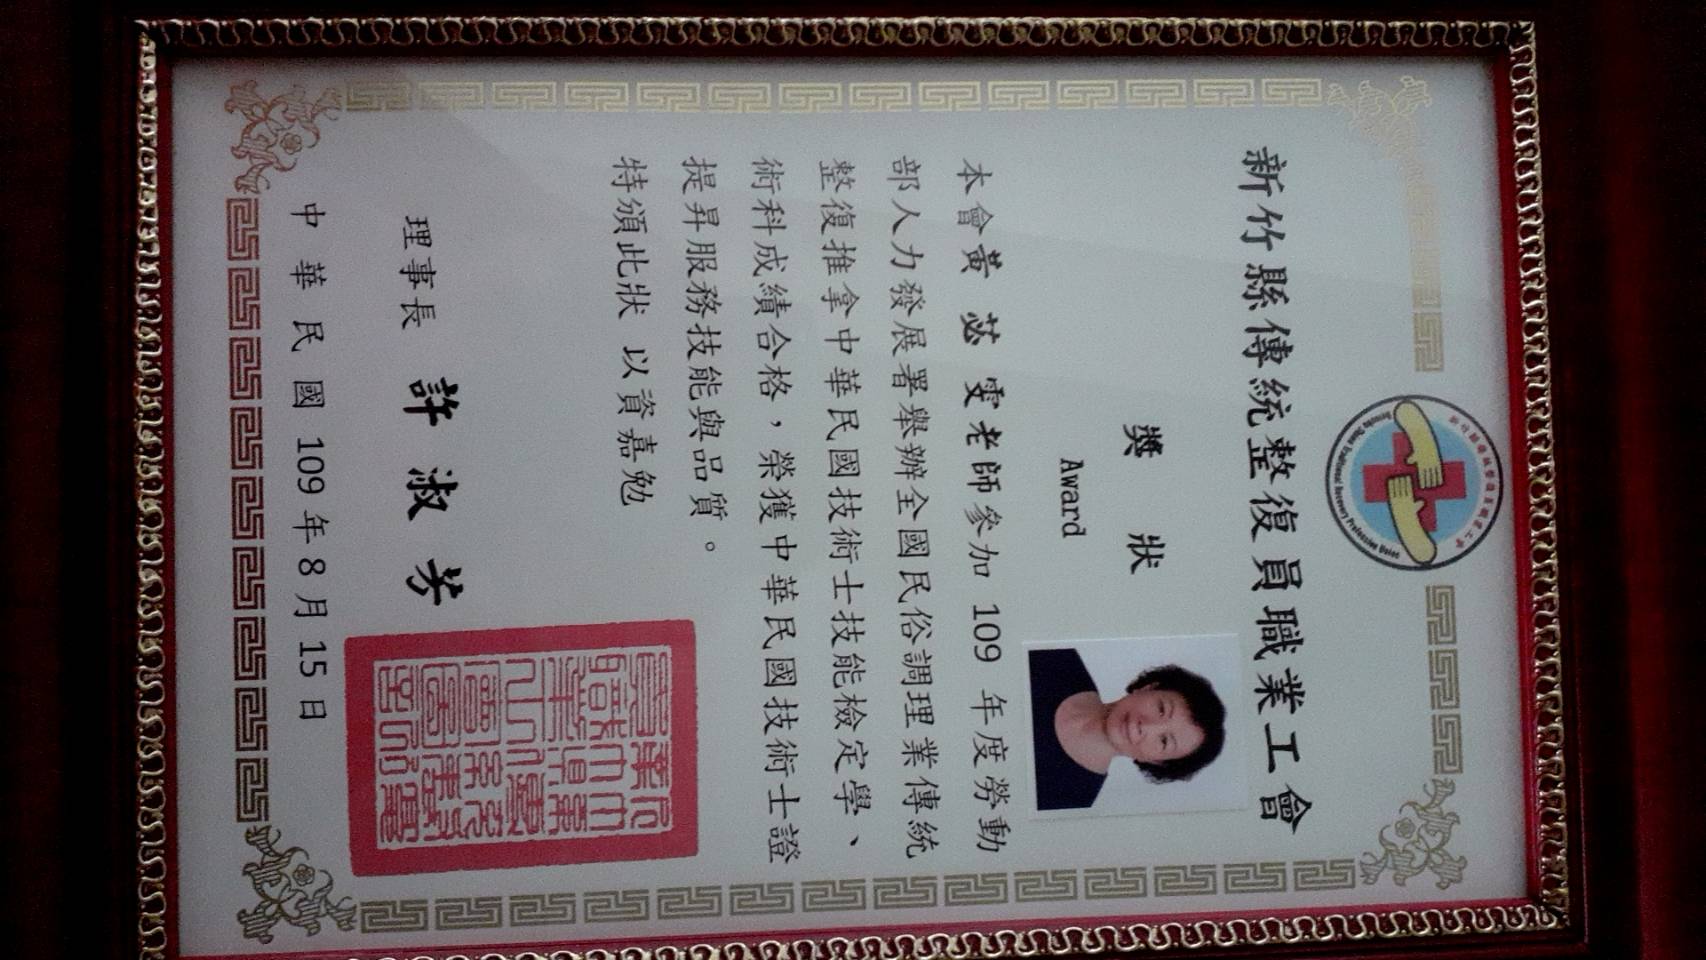 新竹縣傳統整復員職業工會
獎狀
Award
本會黃苾雯老師參加 109 年度勞動
部人力發展署舉辦全國民俗調理業傳統
整復推拿中華民國技術士技能檢定學、
術科成績合格，榮獲中華民國技術士證
提昇服務技能與品質。
特頒此狀 以資嘉勉
理事長 許淑芬
中華民國 109 年 8 月 15 日